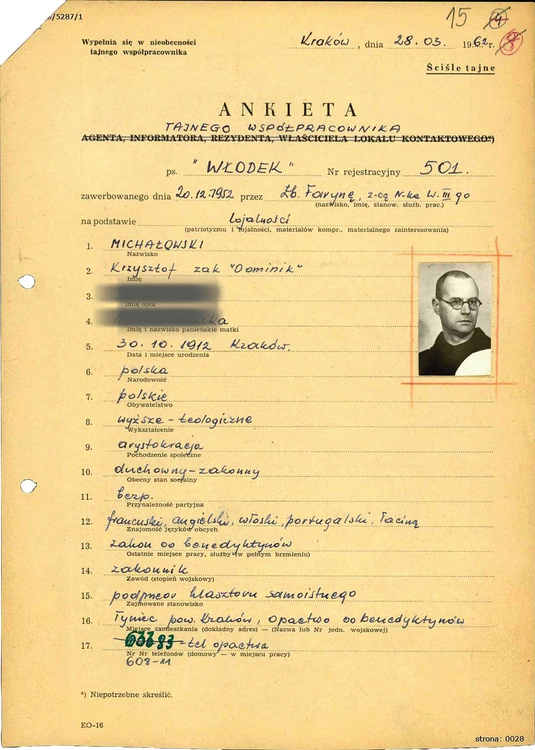 /5287/1
15 4
8
Wypełnia się w nieobecności
tajnego współpracownika
Kraków, dnia 28.03. 1962 r.
Ściśle tajne
ANKIETA
TAJNEGO WSPÓŁPRACOWNIKA
AGENTA, INFORMATORA, REZYDENTA, WŁAŚCICIELA LOKALU KONTAKTOWEGO*)
ps. "WŁODEK" Nr rejestracyjny 501.
zawerbowanego dnia 20.12.1952 przez Zb. Farynę, z-cę N-ka W. III go
(nazwisko, imię, stanow. służb. prac.)
na podstawie lojalności
(patriotyzmu i lojalności, materiałów kompr., materialnego zainteresowania)
1. MICHAŁOWSKI
Nazwisko
2. Krzysztof zak "Dominik"
Imię
3.
Imię ojca
4.
Imię i nazwisko panieńskie matki
5. 30.10.1912 Kraków.
Data i miejsce urodzenia
6. polska
Narodowość
7. polskie
Obywatelstwo
8. wyższe - teologiczne
Wykształcenie
9. arystokracja
Pochodzenie społeczne
10. duchowny-zakonny
Obecny stan socjalny
11. bezp.
Przynależność partyjna
12. francuski, angielski, włoski, portugalski, łacina
Znajomość języków obcych
13. zakon oo benedyktynów
Ostatnie miejsce pracy, służby (w pełnym brzmieniu)
14. zakonnik
Zawód (stopień wojskowy)
15. podprzeor klasztoru samoistnego
Zajmowane stanowisko
16. Tyniec pow. Kraków, Opactwo oo benedyktynów
Miejsce zamieszkania (dokładny adres) — (Nazwa lub Nr jedn. wojskowej)
17. tel opactwa
Nr Nr telefonów (domowy — w miejscu pracy)
608-11
*) Niepotrzebne skreślić.
EO-16
strona: 0028